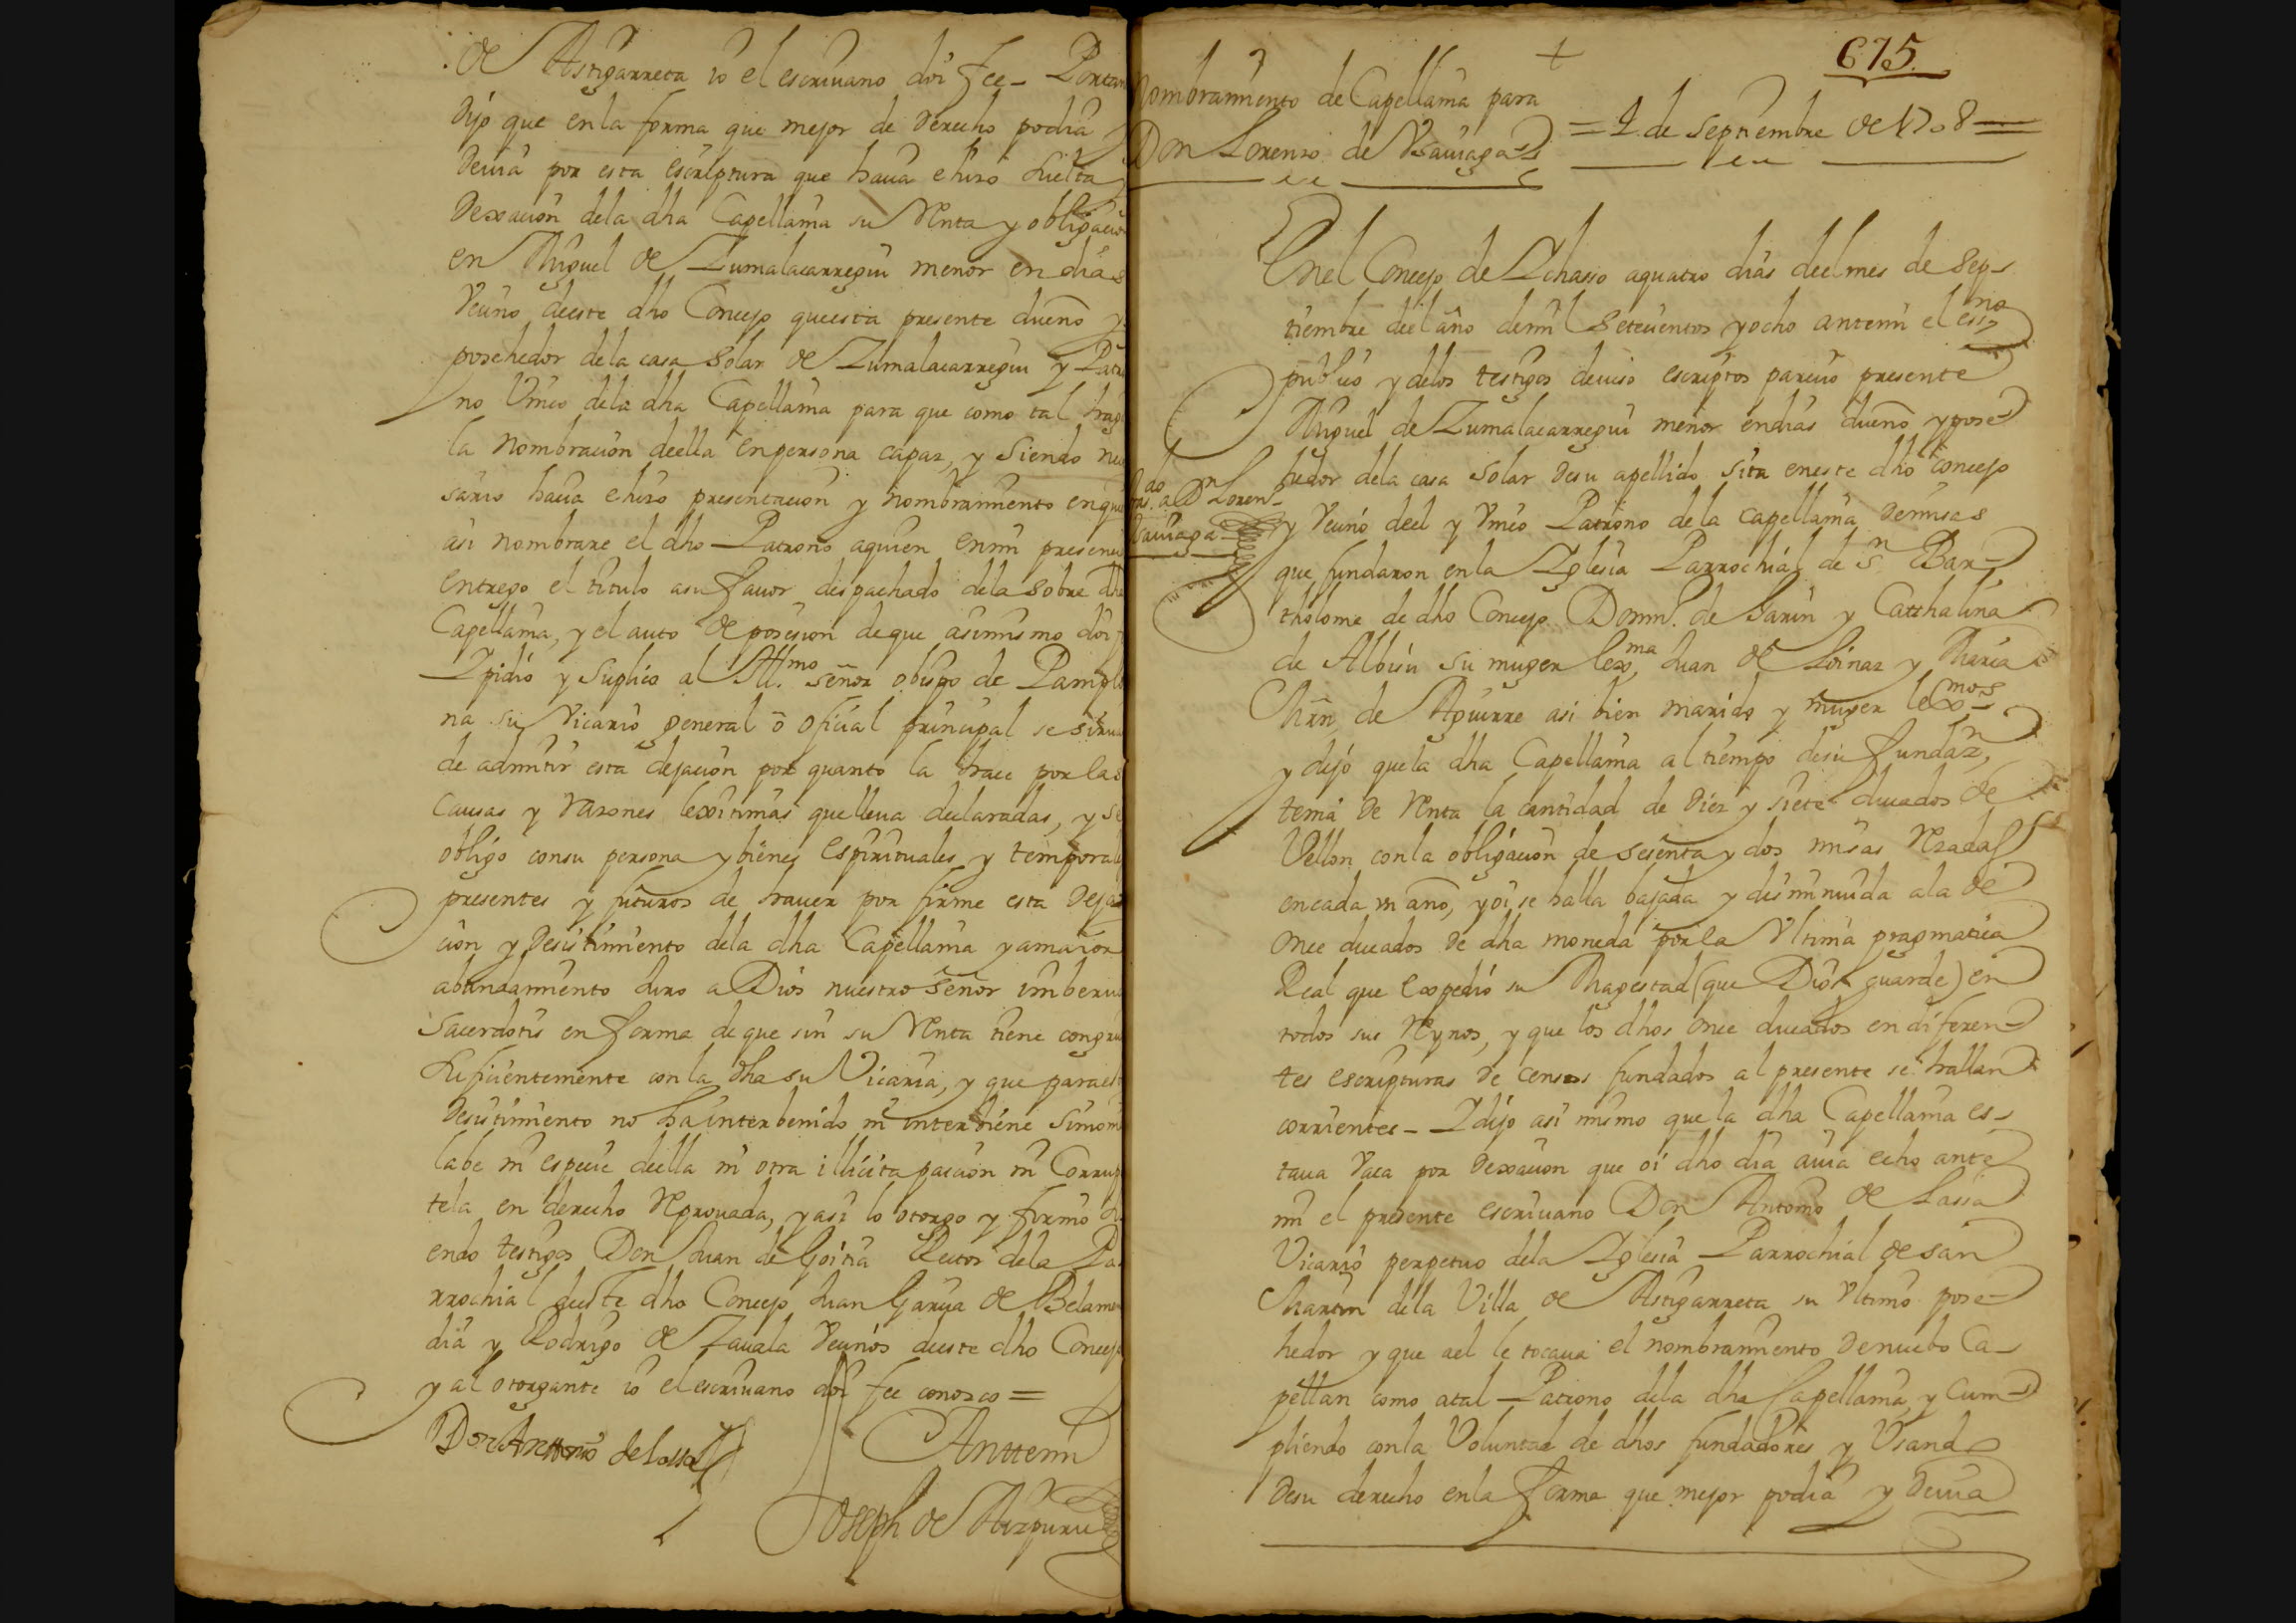 de Astigarreta io el escriuano doi fee - Portan
dijo que enla forma que mejor de derecho podia y
deuia por esta escriptura que haçia e hizo suelta
Dexaçion dela dha Capellania su Renta y obligaçio
en Miguel de Zumalacarregui menor en dias
Veçino deeste dho Conçejo queesta presente dueño y
posehedor dela casa solar de Zumalacarregui y Patro
no Vnico dela dha Capellania para que como tal haga
la nombraçion deella enpersona capaz, y siendo neçe
sario haçia e hizo presentaçion y nombramiento enquien
asi nombrare el dho Patrono aquien enmi presençia
entrego el titulo asu fauor despachado dela sobre dha
Capellania, y el auto de posesion deque asimismo doi f
Ipidio y suplico al Ill.mo señor obispo de Pamplo
na su Vicario general o ofiçial prinçipal se sirua
de admitir esta dejaçion por quanto la haçe porlas
causas y razones lexitimas quelleua declaradas, y se
obligo consu persona ybienes espirituales y temporal
presentes y futuros de hauer por firme esta deja
çion y desistimiento dela dha Capellania yamaior
abundamiento Juro a Dios nuestro señor imberuo
sacerdotis en forma de que sin su Renta tiene congrua
suficientemente con la dha su Vicaria, y que paraeste
desistimiento no ha interbenido ni interbiene simoni
labe ni espeçie deella ni otra illiçita paçion ni Corrup
tela en derecho Reprouada, yasi lo otorgo y firmo si
endo testigos Don Juan de Goitia Rector dela Pa
rrochial deeste dho Conçejo Juan Garçia de Belamen
dia y Rodrigo de Zauala Veçinos deeste dho Conçejo
y al otorgante io el escriuano doi fee conozco =
Don Anttonio de Lassa
Anttemi
Joseph de Aizpuru
675
Nombramiento de Capellania para
Don Lorenzo de Vsauiaga
= 4 de septiembre de 1708 =
Enel Conçejo de Ichasso aquatro dias deelmes de sep-
tiembre deel año demil seteçientos yocho antemi el essno
publico y delos testigos deiuso escriptos pareçio presente
Miguel de Zumalacarregui menor endias dueño ypose
hedor dela casa solar desu apellido sita eneste dho conçejo
do
Tras. a Dn Loren
Vsauiaga
y Veçino deel y Vnico Patrono dela capellania demisas
que fundaron enla Iglesia Parrochial de Sn Bar-
tholome de dho Conçejo Domin.o de Barin y Catthalina
de Albisu su muger lexma, Juan de Loinaz y Maria
Mrn de Aguirre asi bien marido y muger lexmos
y dijo quela dha Capellania al tiempo desu fundazn,
tenia de Renta la cantidad de diez y siete ducados de
Vellon conla obligaçion de sesenta y dos misas Rezadas
encada vn año, yoi se halla bajada y disminuida ala de
onçe ducados de dha moneda porla Vltima pragmatica
Real que expedio su Magestad (que Dios guarde) en
todos sus Reynos, y que los dhos onçe ducados en diferen-
tes escripturas de censos fundados al presente se hallan
corrientes - I dijo asi mismo que la dha Capellania es-
taua vaca por dexaçion que oi dho dia auia echo ante
mi el presente escriuano Don Antonio de Lassa
Vicario perpetuo dela Iglesia Parrochial de san
Martin dela Villa de Astigarreta su Vltimo pose
hedor y que ael le tocaua el nombramiento denuebo Ca-
pellan como atal Patrono dela dha Capellania, y Cum-
pliendo conla Voluntad de dhos fundadores y Vsando
desu derecho enla forma que mejor podia y deuia